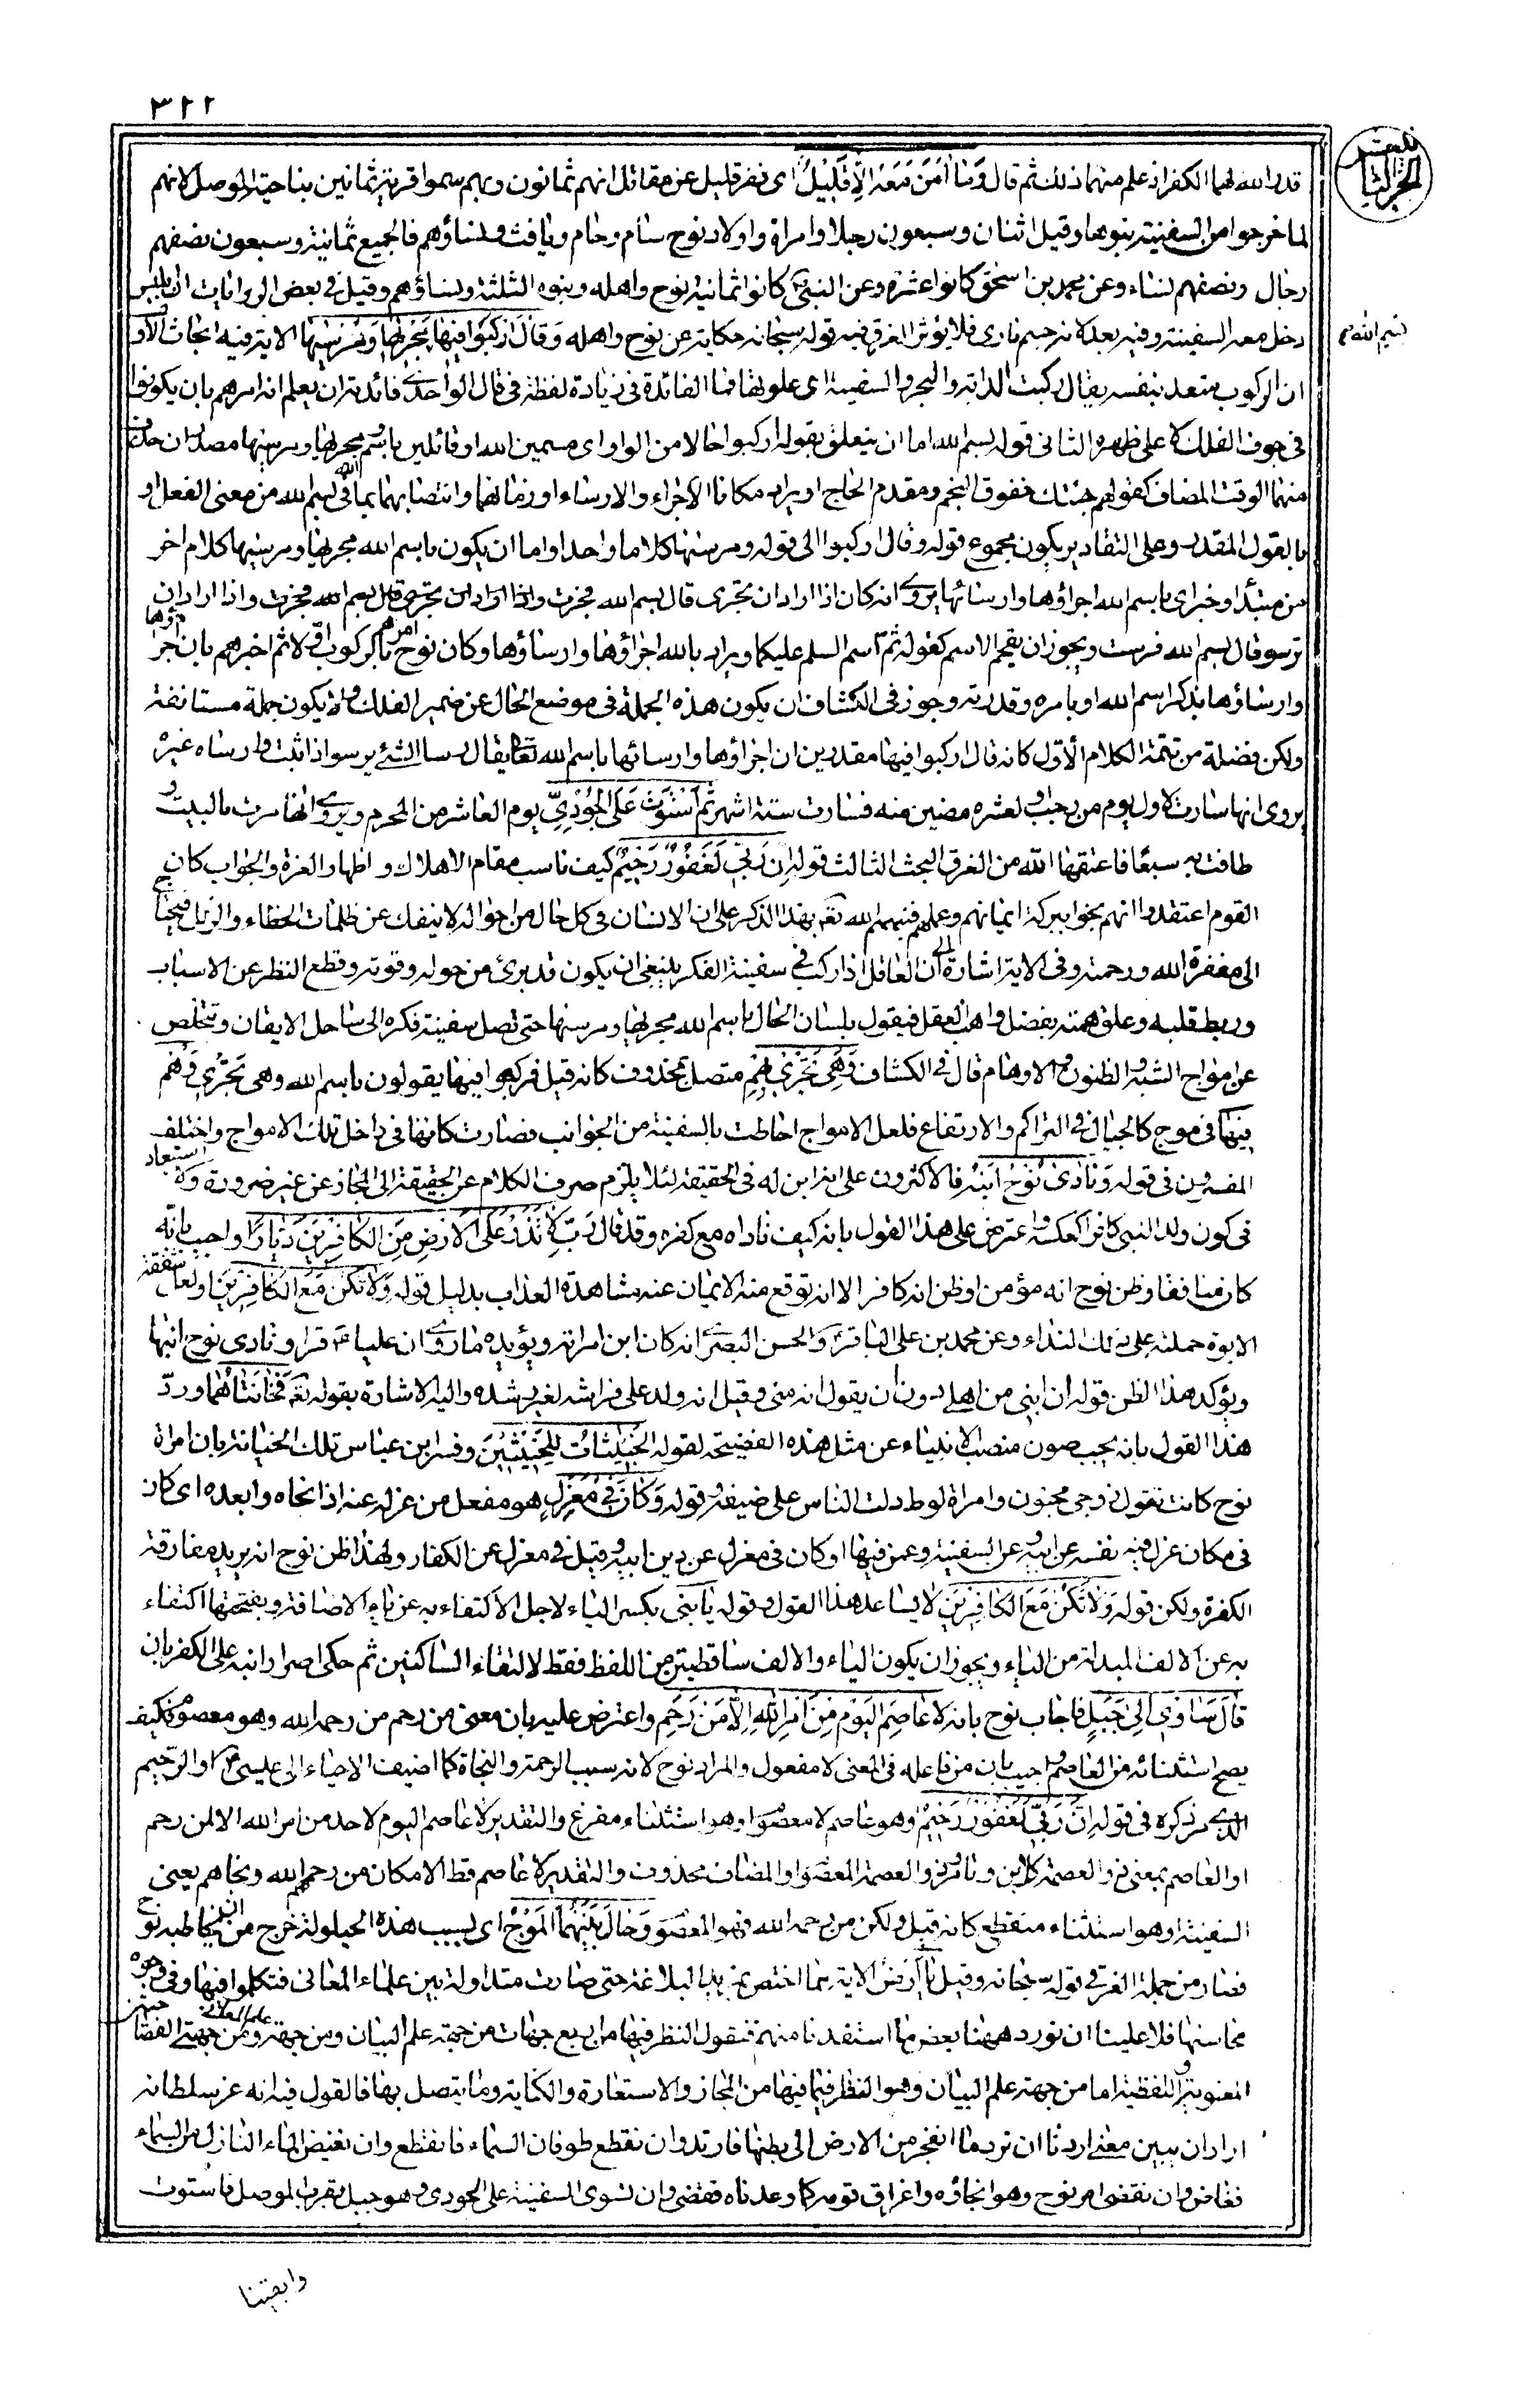 ٣٢٢
قدر الله لهما الكفر اذ علم منهما ذلك ثم قال وَمَا آمَنَ مَعَهُ إِلَّا قَلِيلٌ اى نفر قليل عن مقاتل انهم ثمانون وبهم سموا قرية ثمانين بناحية الموصل لانهم
لما خرجوا من السفينة بنوها وقيل اثنان وسبعون رجلا وامراة واولاد نوح سام وحام ويافث ونساؤهم فالجميع ثمانية وسبعون نصفهم
رجال ونصفهم نساء وعن محمد بن اسحق كانوا عشرة وعن النبى كانوا ثمانية نوح واهله وبنوه الثلثة ونساؤهم وقيل فى بعض الروايات ان ابليس
دخل معه السفينة وفيه بعد لانه جسم نارى فلا يؤثر الغرق فيه قوله سبحانه حكاية عن نوح واهله وَقَالَ ارْكَبُوا فِيهَا مَجْرٰىهَا وَمُرْسٰىهَا الاية فيه ابحاث الاول
بسم الله
ان الركوب متعد بنفسه يقال ركبت الدابة والبحر والسفينة اى علوتها فما الفائدة فى زيادة لفظة فى قال الواحدى فائدته ان يعلم انه امرهم بان يكونوا
فى جوف الفلك لا على ظهره الثانى قوله بسم الله اما ان يتعلق بقوله اركبوا حالا من الواو اى مسمين الله او قائلين باسم الله مجريها ومرسيها مصدران حذف
منهما الوقت المضاف كقولهم جئتك خفوق النجم ومقدم الحاج او يراد مكانا الاجراء والارساء او زمانهما وانتصابهما بما فى بسم الله من معنى الفعل او
بالقول المقدر وعلى التقادير يكون مجموع قوله وقال اركبوا الى قوله ومرسيها كلاما واحدا واما ان يكون باسم الله مجريها ومرسيها كلام اخر
من مبتدأ وخبر اى باسم الله اجراؤها وارساؤها يروى انه كان اذا اراد ان تجرى قال بسم الله فجرت واذا اراد ان
ترسو قال بسم الله فرست ويجوز ان يقحم الاسم كقوله ثم اسم السلم عليكما ويراد بالله اجراؤها وارساؤها وكان نوح امرهم بالركوب اولا ثم اخبرهم بان اجراؤها
وارساؤها بذكر اسم الله او بامره وقدرته وجوز فى الكشاف ان يكون هذه الجملة فى موضع الحال عن ضمير الفلك فلا يكون جملة مستانفة
ولكن فضلة من تتمة الكلام الاول كانه قال اركبوا فيها مقدرين ان اجراؤها وارسائها باسم الله تعالى يقال رسا الشئ يرسو اذا ثبت وارساه غيره
يروى انها سارت لاول يوم من رجب او لعشر مضين منه فسارت ستة اشهر ثُمَّ اسْتَوَتْ عَلَى الْجُودِيِّ يوم العاشر من المحرم ويروى انها مرت بالبيت و
طافت به سبعًا فاعتقها الله من الغرق البحث الثالث قوله إِنَّ رَبِّي لَغَفُورٌ رَحِيمٌ كيف ناسب مقام الاهلاك واظهار العزة والجواب كان
القوم اعتقدوا انهم نجوا ببركة ايمانهم وعملهم فنبههم الله تعالى بهذا الذكر على ان الانسان فى كل حال من احواله لا ينفك عن ظلمات الخطاء والزلل فيحتاج
الى مغفرة الله ورحمته وفى الاية اشارة الى ان العاقل اذا ركب فى سفينة الفكر ينبغى ان يكون قد برئ من حوله وقوته وقطع النظر عن الاسباب
وربط قلبه وعلق همته بفضل واهب العقل فيقول بلسان الحال باسم الله مجريها ومرسيها حتى تصل سفينة فكره الى ساحل الايقان وتتخلص
عن امواج الشبه والظنون والاوهام قال فى الكشاف وَهِيَ تَجْرِي بِهِمْ متصل بمحذوف كانه قيل فركبوا فيها يقولون باسم الله وهى تجرى وهم
فيها فى موج كالجبال فى التراكم والارتفاع فلعل الامواج احاطت بالسفينة من الجوانب فصارت كانها فى داخل تلك الامواج واختلف
المفسرون فى قوله وَنَادٰى نُوحٌ ابْنَهُ فالاكثرون على انه ابن له فى الحقيقة لئلا يلزم صرف الكلام عن الحقيقة الى المجاز عن غير ضرورة ولا استبعاد
فى كون ولد النبى كافرا كعكسه واعترض على هذا القول بانه كيف ناداه مع كفره وقد قال رَبِّ لَا تَذَرْ عَلَى الْأَرْضِ مِنَ الْكَافِرِينَ دَيَّارًا واجيب بانه
كان منافقا وظن نوح انه مؤمن او ظن انه كافر الا انه توقع منه الايمان عند مشاهدة العذاب بدليل قوله وَلَا تَكُنْ مَعَ الْكَافِرِينَ او لعل شفقة
الابوة حملته على ذلك النداء وعن محمد بن على الباقر والحسن البصرى انه كان ابن امراته ويؤيده ما روى ان عليا قرا ونادى نوح ابنها
ويؤكد هذا الظن قوله ان ابنى من اهلى دون ان يقول انه منى وقيل انه ولد على فراشه لغير رشده واليه الاشارة بقوله تعالى فَخَانَتَاهُمَا وردّ
هذا القول بانه يجب صون منصب الانبياء عن مثل هذه الفضيحة لقوله الْخَبِيثَاتُ لِلْخَبِيثِينَ وفسر ابن عباس تلك الخيانة بان امراة
نوح كانت تقول زوجى مجنون وامراة لوط دلت الناس على ضيفه وقوله وَكَانَ فِي مَعْزِلٍ هو مفعل من عزله عنه اذا نحاه وابعده اى كان
فى مكان عزل فيه نفسه عن ابيه وعن السفينة وعمن فيها او كان فى معزل عن دين ابيه وقيل فى معزل عن الكفار ولهذا ظن نوح انه يريد مفارقة
الكفرة ولكن قوله وَلَا تَكُنْ مَعَ الْكَافِرِينَ لا يساعد هذا القول وقوله يَا بُنَيِّ بكسر الياء لاجل الاكتفاء به عن ياء الاضافة وبفتحها اكتفاء
به عن الالف المبدلة من الياء ويجوز ان يكون الياء والالف ساقطتين من اللفظ فقط لالتقاء الساكنين ثم حكى اصرار ابنه على الكفر بان
قَالَ سَآوِي إِلَى جَبَلٍ فاجاب نوح بانه لَا عَاصِمَ الْيَوْمَ مِنْ أَمْرِ اللّٰهِ إِلَّا مَنْ رَحِمَ واعترض عليه بان معنى من رحم من رحمه الله وهو معصوم فكيف
يصح استثنائه من العاصم واجيب بان من فاعله فى المعنى لا مفعول والمراد نوح لانه سبب الرحمة والنجاة كما اضيف الاحياء الى عيسى او الرحيم
الذى مر ذكره فى قوله إِنَّ رَبِّي لَغَفُورٌ رَحِيمٌ وهو عاصم لا معصوم وهو استثناء مفرغ والتقدير لا عاصم اليوم لاحد من امر الله الا لمن رحم
او العاصم بمعنى ذو العصمة كلابن وتامر وذو العصمة المعصوم او المضاف محذوف والتقدير لا عاصم قط الا مكان من رحمهم الله ونجاهم يعنى
السفينة او هو استثناء منقطع كانه قيل ولكن من رحمه الله فهو المعصوم وَحَالَ بَيْنَهُمَا الْمَوْجُ اى بسبب هذه الحيلولة خرج من ان يخاطبه نوح
فصار من جملة الغرقى قوله سبحانه وقيل يَا أَرْضُ الاية مما اختص بمزيد البلاغة حتى صارت متداولة بين علماء المعانى فتكلموا فيها وفى وجوه
محاسنها فلا علينا ان نورد ههنا بعض ما استفدنا منهم فنقول النظر فيها من اربع جهات من جهة علم البيان ومن جهة علم المعانى ومن جهتى الفصاحتين
المعنوية واللفظية اما من جهة علم البيان وهو النظر فيما فيها من المجاز والاستعارة والكناية وما يتصل بها فالقول فيه انه عز سلطانه
اراد ان يبين معنى اردنا ان نرد ما انفجر من الارض الى بطنها فارتد وان نقطع طوفان السماء فانقطع وان نغيض الماء النازل من السماء
فغاض وان نقضى امر نوح وهو انجاؤه واغراق قومه كما وعدناه فقضى وان نسوى السفينة على الجودى وهو جبل بقرب الموصل فاستوت
وابقينا